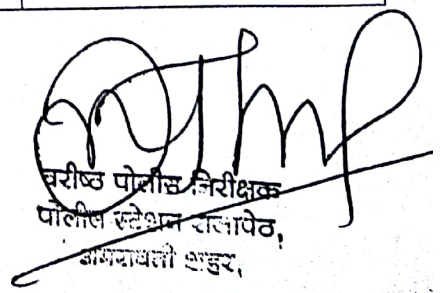 वरीष्ठ पोलीस निरीक्षक
पोलीस स्टेशन राजापेठ,
अमरावती शहर,